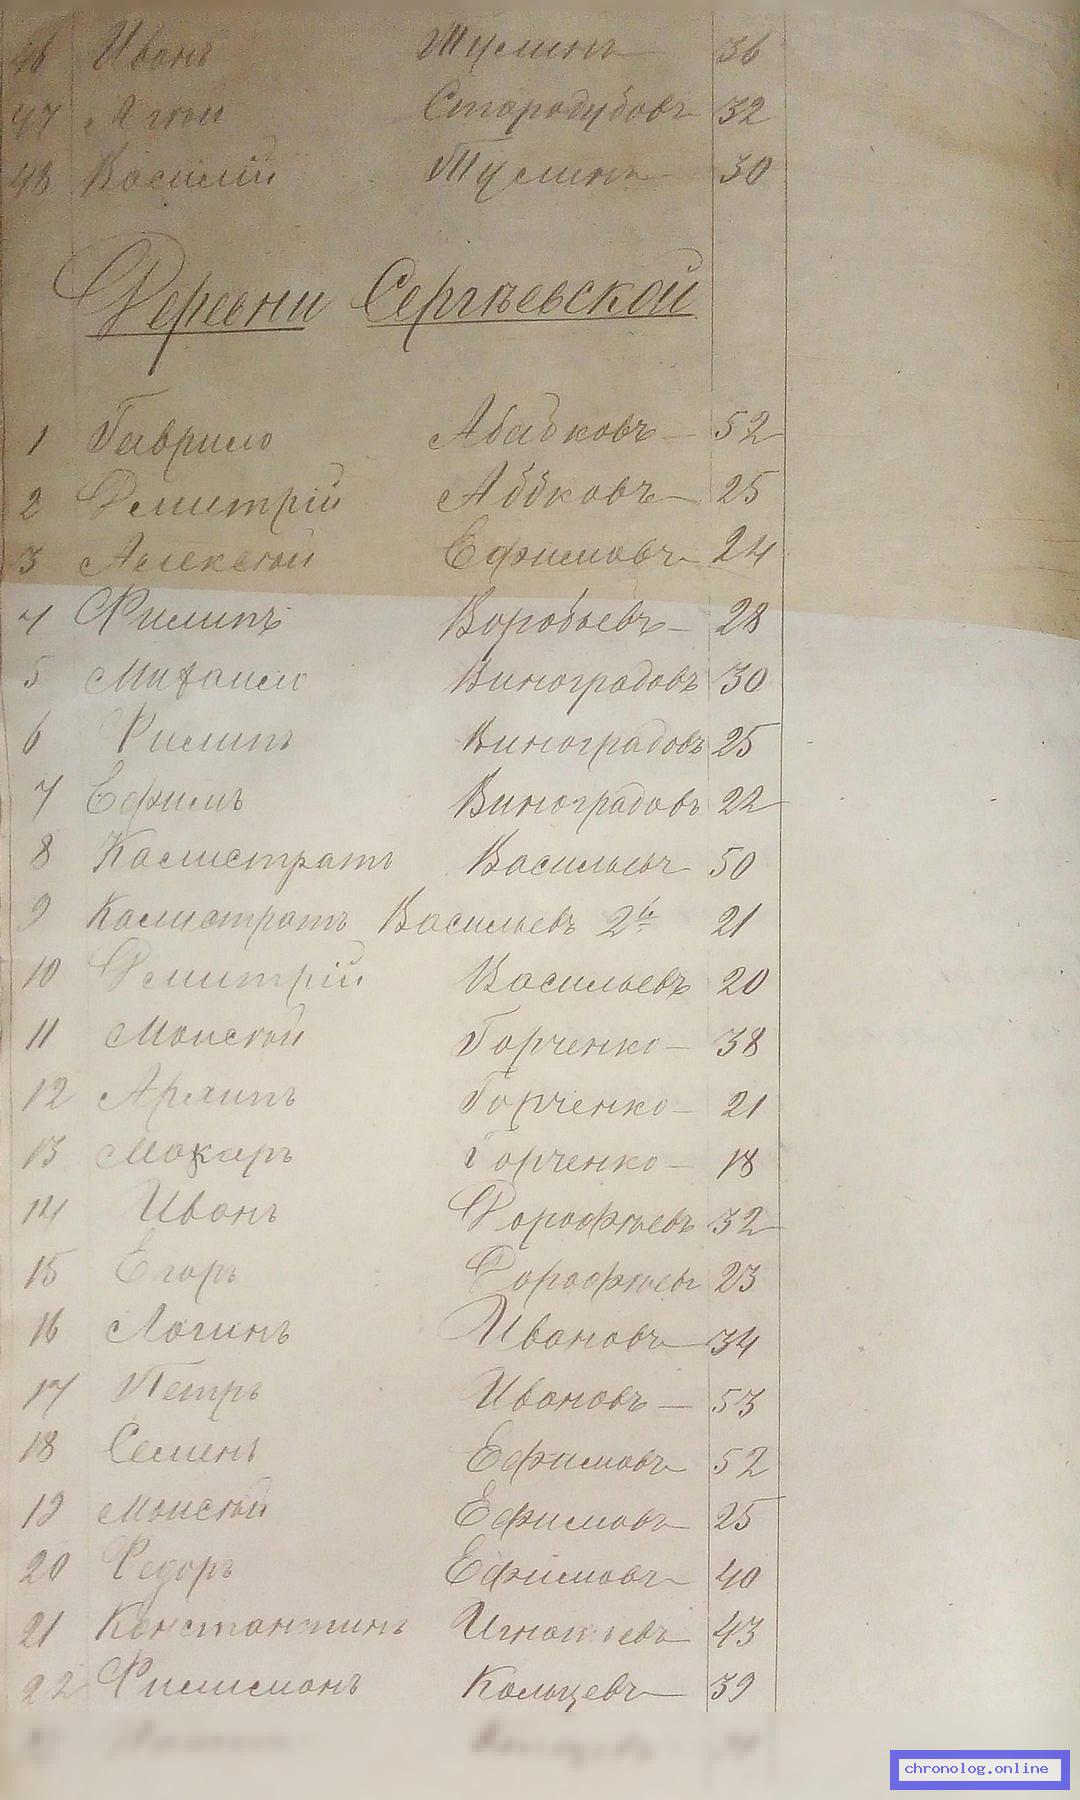 46 Иванъ Тюлинъ 36
47 32
48 Василій Тюлинъ 30
Деревни Сергѣевской
1 Гаврило Абабковъ 52
2 Дмитрій 25
3 Алексѣй Ефимовъ 24
4 Филипъ Воробьевъ 28
5 Михаило Виноградовъ 30
6 Филипъ Виноградовъ 25
7 Ефимъ Виноградовъ 22
8 Калистратъ Васильевъ 50
9 Калистратъ Васильевъ 2й 21
10 Дмитрій Васильевъ 20
11 Моисѣй Горченко 38
12 Архипъ Горченко 21
13 Макаръ Горченко 18
14 Иванъ Дорофѣевъ 32
15 Егоръ Дорофѣевъ 23
16 Логинъ Ивановъ 34
17 Петръ Ивановъ 53
18 Семенъ Ефимовъ 52
19 Моисѣй Ефимовъ 25
20 Федоръ Ефимовъ 40
21 Константинъ Игнатьевъ 43
22 Филимонъ Кольцевъ 39
chronolog.online